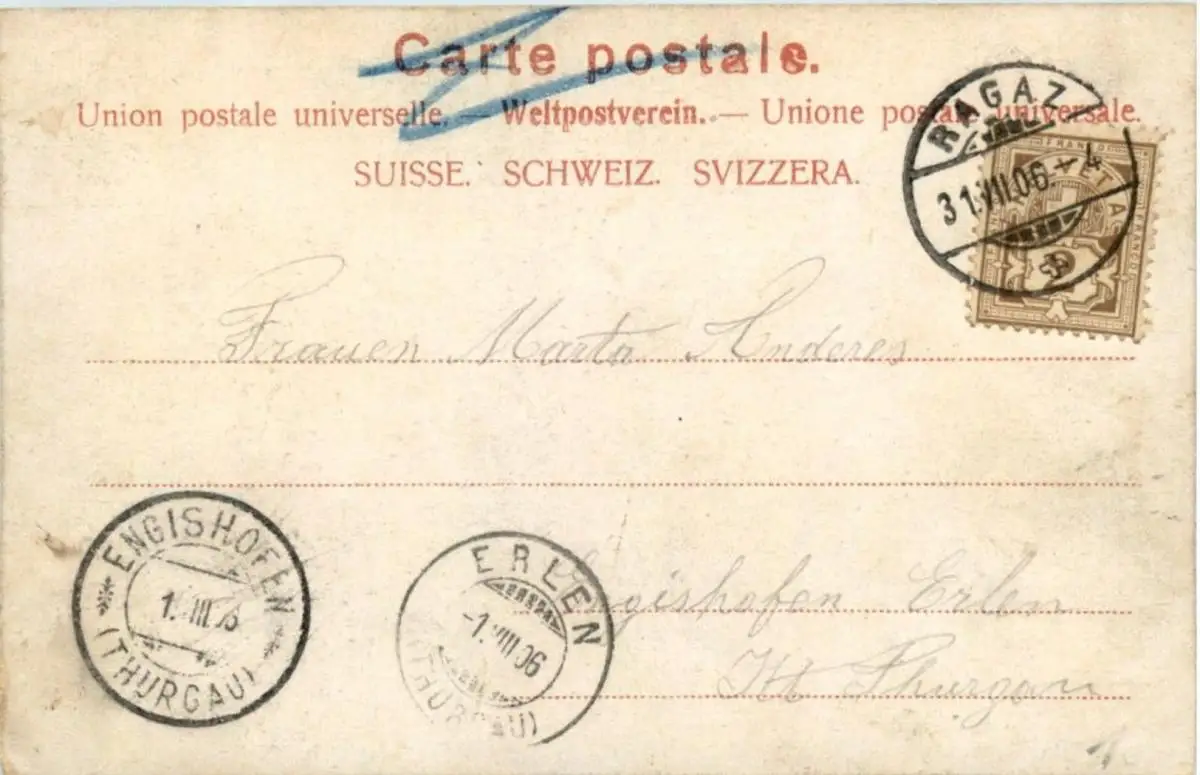 Carte postale.
Union postale universelle. — Weltpostverein. — Unione postale universale.
SUISSE. SCHWEIZ. SVIZZERA.
RAGAZ
31.VII.06.-4
FRANCO
HELVETIA
2
Frauen Marta Anderes
ENGISHOFEN
1. VIII. 06
(THURGAU)
ERLEN
-1.VIII.06
(THURGAU)
Engishofen Erlen
Kt Thurgau